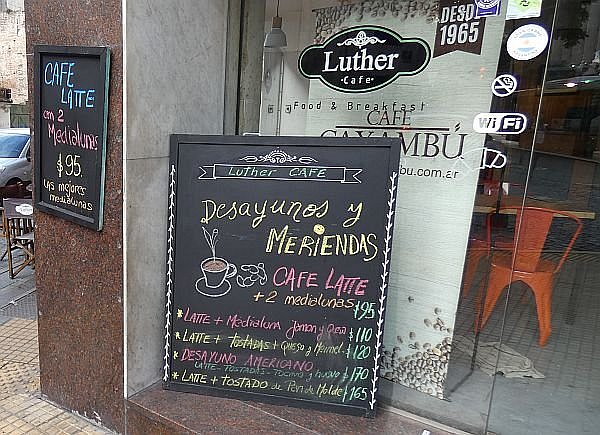 CAFE
LATTE
con 2
Medialunas
$95
Las mejores
medialunas
DESDE
1965
Luther
Cafe
Food & Breakfast
CAFE
CAYAMBÚ
bu.com.ar
WiFi
LUTHER CAFE
DESAYUNOS Y
MERIENDAS
CAFE LATTE
+ 2 medialunas $95
* LATTE + Medialuna Jamon y Queso $110
* LATTE + TOSTADAS + QUESO y Mermel $120
* DESAYUNO AMERICANO
LATTE - TOSTADAS - TOCINO y huevo $170
* LATTE + TOSTADO de Pan de Molde $165